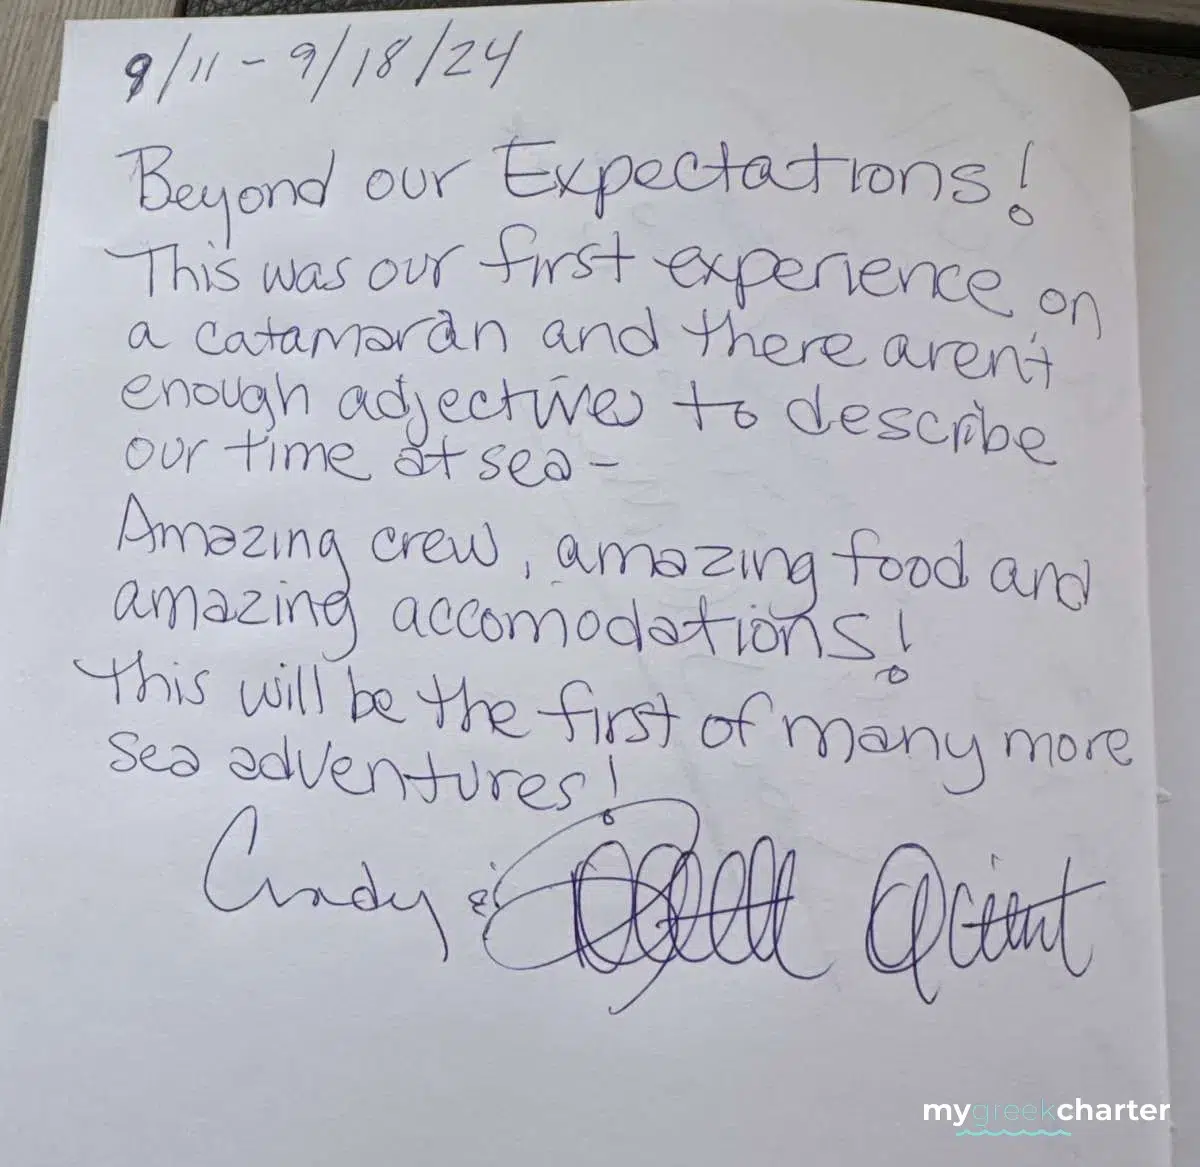 9/11 - 9/18/24
Beyond our Expectations!
This was our first experience on
a catamaran and there aren't
enough adjective to describe
our time at sea -
Amazing crew, amazing food and
amazing accomodations!
This will be the first of many more
sea adventures!
Cindy &
mygreekcharter